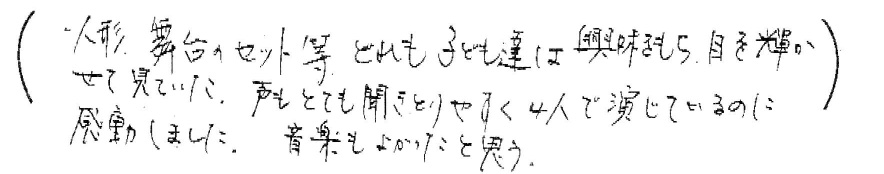 (・人形、舞台のセット等、どれも子ども達は興味をもち、目を輝か
せて見ていた。声もとても聞きとりやすく4人で演じているのに
感動しました。 音楽もよかったと思う。)